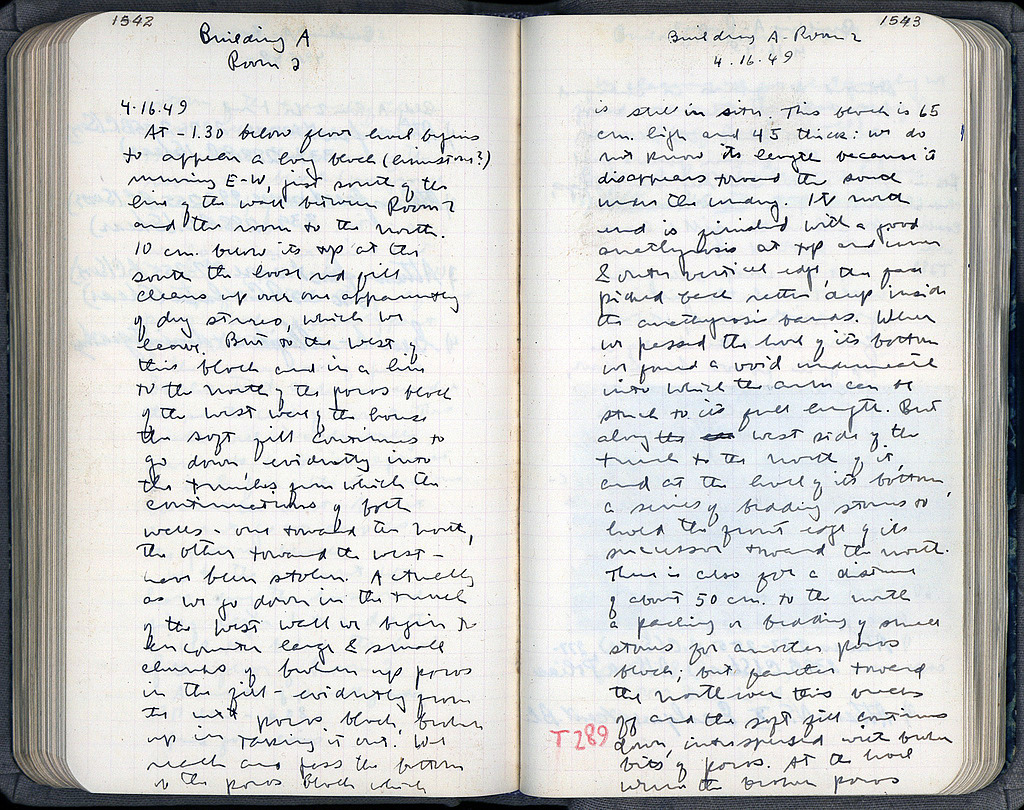 1542
Building A
Room 2
4.16.49
At -1.30 below floor level begins
to appear a long block (dimensions?)
running E-W, just south of the
line of the wall between Room 2
and the room to the north.
10 cm. below its top at the
south the loose red fill
cleans up over one apparently
of dry stones, which we
leave. But to the west of
this block and in a line
to the north of the poros block
of the west wall of the house
the soft fill continues to
go down evidently into
the trenches from which the
continuations of both
walls - one toward the north,
the other toward the west -
have been stolen. Actually
as we go down in the trench
of the west wall we begin to
encounter large & small
chunks of broken up poros
in the fill - evidently from
the next poros block, broken
up in taking it out. We
reach and pass the bottom
of the poros block which
1543
Building A - Room 2
4.16.49
is still in situ. This block is 65
cm. high and 45 thick: we do
not know its length because it
disappears toward the south
under the undug. Its north
end is finished with a good
anathyrosis at top and inner
& outer vertical edge, the face
picked back rather deep inside
the anathyrosis bands. When
we passed the level of its bottom
we found a void underneath
into which the arm can be
stuck to its full length. But
along the west side of the
trench to the north of it,
and at the level of its bottom,
a series of bedding stones to
hold the front edge of its
successor toward the north.
There is also for a distance
of about 50 cm. to the north
a packing or bedding of small
stones for another poros
block; but farther toward
the north even this breaks
off and the soft fill continues
down, interspersed with broken
bits of poros. At the level
where the broken poros
T289